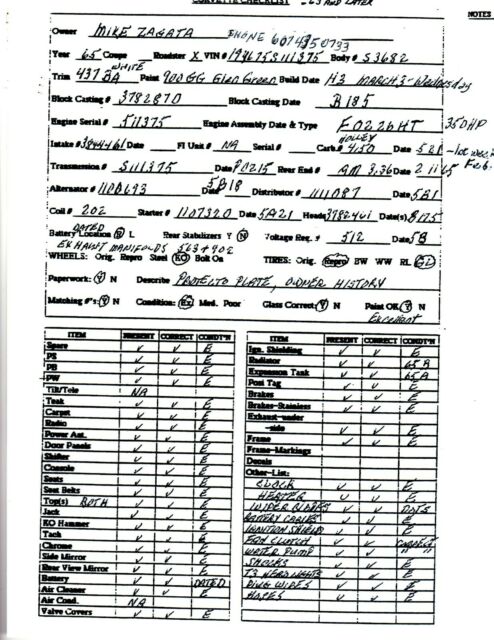 CORVETTE CHECKLIST - 63 AND LATER
NOTES
Owner MIKE ZAGATA PHONE 6074350733
Year 65 Coupe Roadster X VIN# 194675S111375 Body# S3682
WHITE
Trim 437BA Paint 900GG Glen Green Build Date H3 MARCH 3-Wednesday
Block Casting # 3782870 Block Casting Date B185
Engine Serial # 511375 Engine Assembly Date & Type F0226HT 350HP
HOLLEY
Intake# 3844461 Date FI Unit # NA Serial # Carb.# 450 Date 521
Transmission # S111375 Date P0215 Rear End # AM 3.36 Date 2 11 65
Alternator # 1100693 Date 5B18 Distributor # 1111087 Date 5B1
Coil # 202 Starter # 1107320 Date 5A21 Heads 3782461 Date(s)
DATED
Battery Location R L Rear Stabilizers Y N Voltage Reg. # 512 Date 5B
EXHAUST MANIFOLDS 563 + 902
WHEELS: Orig. Repro Steel KO Bolt On TIRES: Orig. Repro BW WW RL GL
Paperwork: Y N Describe PROTECTO PLATE, OWNER HISTORY
Matching #'s: Y N Condition: Ex Med. Poor Glass Correct: Y N Paint OK Y N
Excellent
ITEM PRESENT CORRECT CONDT'N
Spare ✓ ✓ E
PS ✓ ✓ E
PB ✓ ✓ E
PW ✓ ✓ E
Tilt/Tele NA
Teak ✓ ✓ E
Carpet ✓ ✓ E
Radio ✓ ✓ E
Power Ant. ✓ ✓ E
Door Panels ✓ ✓ E
Shifter ✓ ✓ E
Console ✓ ✓ E
Seats ✓ ✓ E
Seat Belts ✓ ✓ E
Top(s) BOTH ✓ ✓ E
Jack ✓ ✓ E
KO Hammer ✓ ✓ E
Tach ✓ ✓ E
Chrome ✓ ✓ E
Side Mirror ✓ ✓ E
Rear View Mirror ✓ ✓ E
Battery ✓ ✓ DATED
Air Cleaner ✓ ✓ E
Air Cond. NA
Valve Covers ✓ ✓ E
ITEM PRESENT CORRECT CONDT'N
Ign. Shielding ✓ ✓ E
Radiator ✓ ✓ 65A
Expansion Tank ✓ ✓ 65A
Posi Tag ✓ ✓ E
Brakes ✓ ✓ E
Brakes-Stainless ✓ ✓ E
Exhaust-under
-side ✓ ✓ E
Frame ✓ ✓ E
Frame-Markings
Decals
Other-List:
CLOCK ✓ ✓ E
HEATER ✓ ✓ E
WIPER BLADES ✓ ✓ DOTS
BATTERY CABLES ✓ ✓ E
IGNITION SHIELD ✓ ✓ E
FAN CLUTCH ✓ ✓ CORRECT
WATER PUMP ✓ ✓ " "
SHOCKS ✓ ✓ E
T3 HEADLIGHTS ✓ ✓ E
PLUG WIRES ✓ ✓ E
HOSES ✓ ✓ E